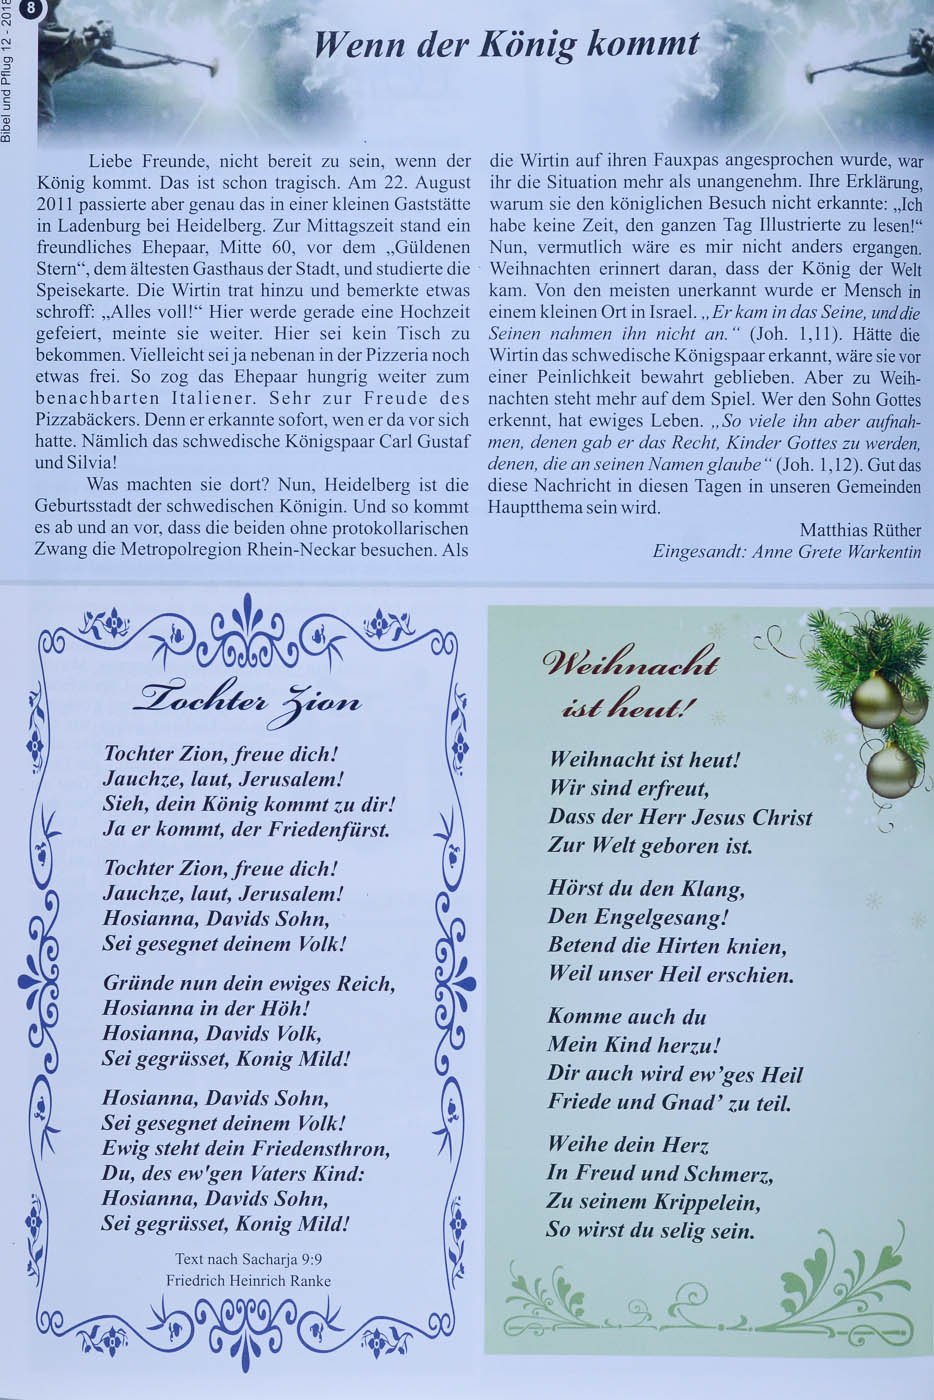 8
Bibel und Pflug 12 - 2018
Wenn der König kommt
Liebe Freunde, nicht bereit zu sein, wenn der
König kommt. Das ist schon tragisch. Am 22. August
2011 passierte aber genau das in einer kleinen Gaststätte
in Ladenburg bei Heidelberg. Zur Mittagszeit stand ein
freundliches Ehepaar, Mitte 60, vor dem „Güldenen
Stern“, dem ältesten Gasthaus der Stadt, und studierte die
Speisekarte. Die Wirtin trat hinzu und bemerkte etwas
schroff: „Alles voll!“ Hier werde gerade eine Hochzeit
gefeiert, meinte sie weiter. Hier sei kein Tisch zu
bekommen. Vielleicht sei ja nebenan in der Pizzeria noch
etwas frei. So zog das Ehepaar hungrig weiter zum
benachbarten Italiener. Sehr zur Freude des
Pizzabäckers. Denn er erkannte sofort, wen er da vor sich
hatte. Nämlich das schwedische Königspaar Carl Gustaf
und Silvia!
Was machten sie dort? Nun, Heidelberg ist die
Geburtsstadt der schwedischen Königin. Und so kommt
es ab und an vor, dass die beiden ohne protokollarischen
Zwang die Metropolregion Rhein-Neckar besuchen. Als
die Wirtin auf ihren Fauxpas angesprochen wurde, war
ihr die Situation mehr als unangenehm. Ihre Erklärung,
warum sie den königlichen Besuch nicht erkannte: „Ich
habe keine Zeit, den ganzen Tag Illustrierte zu lesen!“
Nun, vermutlich wäre es mir nicht anders ergangen.
Weihnachten erinnert daran, dass der König der Welt
kam. Von den meisten unerkannt wurde er Mensch in
einem kleinen Ort in Israel. „Er kam in das Seine, und die
Seinen nahmen ihn nicht an.“ (Joh. 1,11). Hätte die
Wirtin das schwedische Königspaar erkannt, wäre sie vor
einer Peinlichkeit bewahrt geblieben. Aber zu Weih-
nachten steht mehr auf dem Spiel. Wer den Sohn Gottes
erkennt, hat ewiges Leben. „So viele ihn aber aufnah-
men, denen gab er das Recht, Kinder Gottes zu werden,
denen, die an seinen Namen glaube“ (Joh. 1,12). Gut das
diese Nachricht in diesen Tagen in unseren Gemeinden
Hauptthema sein wird.
Matthias Rüther
Eingesandt: Anne Grete Warkentin
Tochter Zion
Tochter Zion, freue dich!
Jauchze, laut, Jerusalem!
Sieh, dein König kommt zu dir!
Ja er kommt, der Friedenfürst.
Tochter Zion, freue dich!
Jauchze, laut, Jerusalem!
Hosianna, Davids Sohn,
Sei gesegnet deinem Volk!
Gründe nun dein ewiges Reich,
Hosianna in der Höh!
Hosianna, Davids Volk,
Sei gegrüsset, Konig Mild!
Hosianna, Davids Sohn,
Sei gesegnet deinem Volk!
Ewig steht dein Friedensthron,
Du, des ew'gen Vaters Kind:
Hosianna, Davids Sohn,
Sei gegrüsset, Konig Mild!
Text nach Sacharja 9:9
Friedrich Heinrich Ranke
Weihnacht
ist heut!
Weihnacht ist heut!
Wir sind erfreut,
Dass der Herr Jesus Christ
Zur Welt geboren ist.
Hörst du den Klang,
Den Engelgesang!
Betend die Hirten knien,
Weil unser Heil erschien.
Komme auch du
Mein Kind herzu!
Dir auch wird ew’ges Heil
Friede und Gnad’ zu teil.
Weihe dein Herz
In Freud und Schmerz,
Zu seinem Krippelein,
So wirst du selig sein.